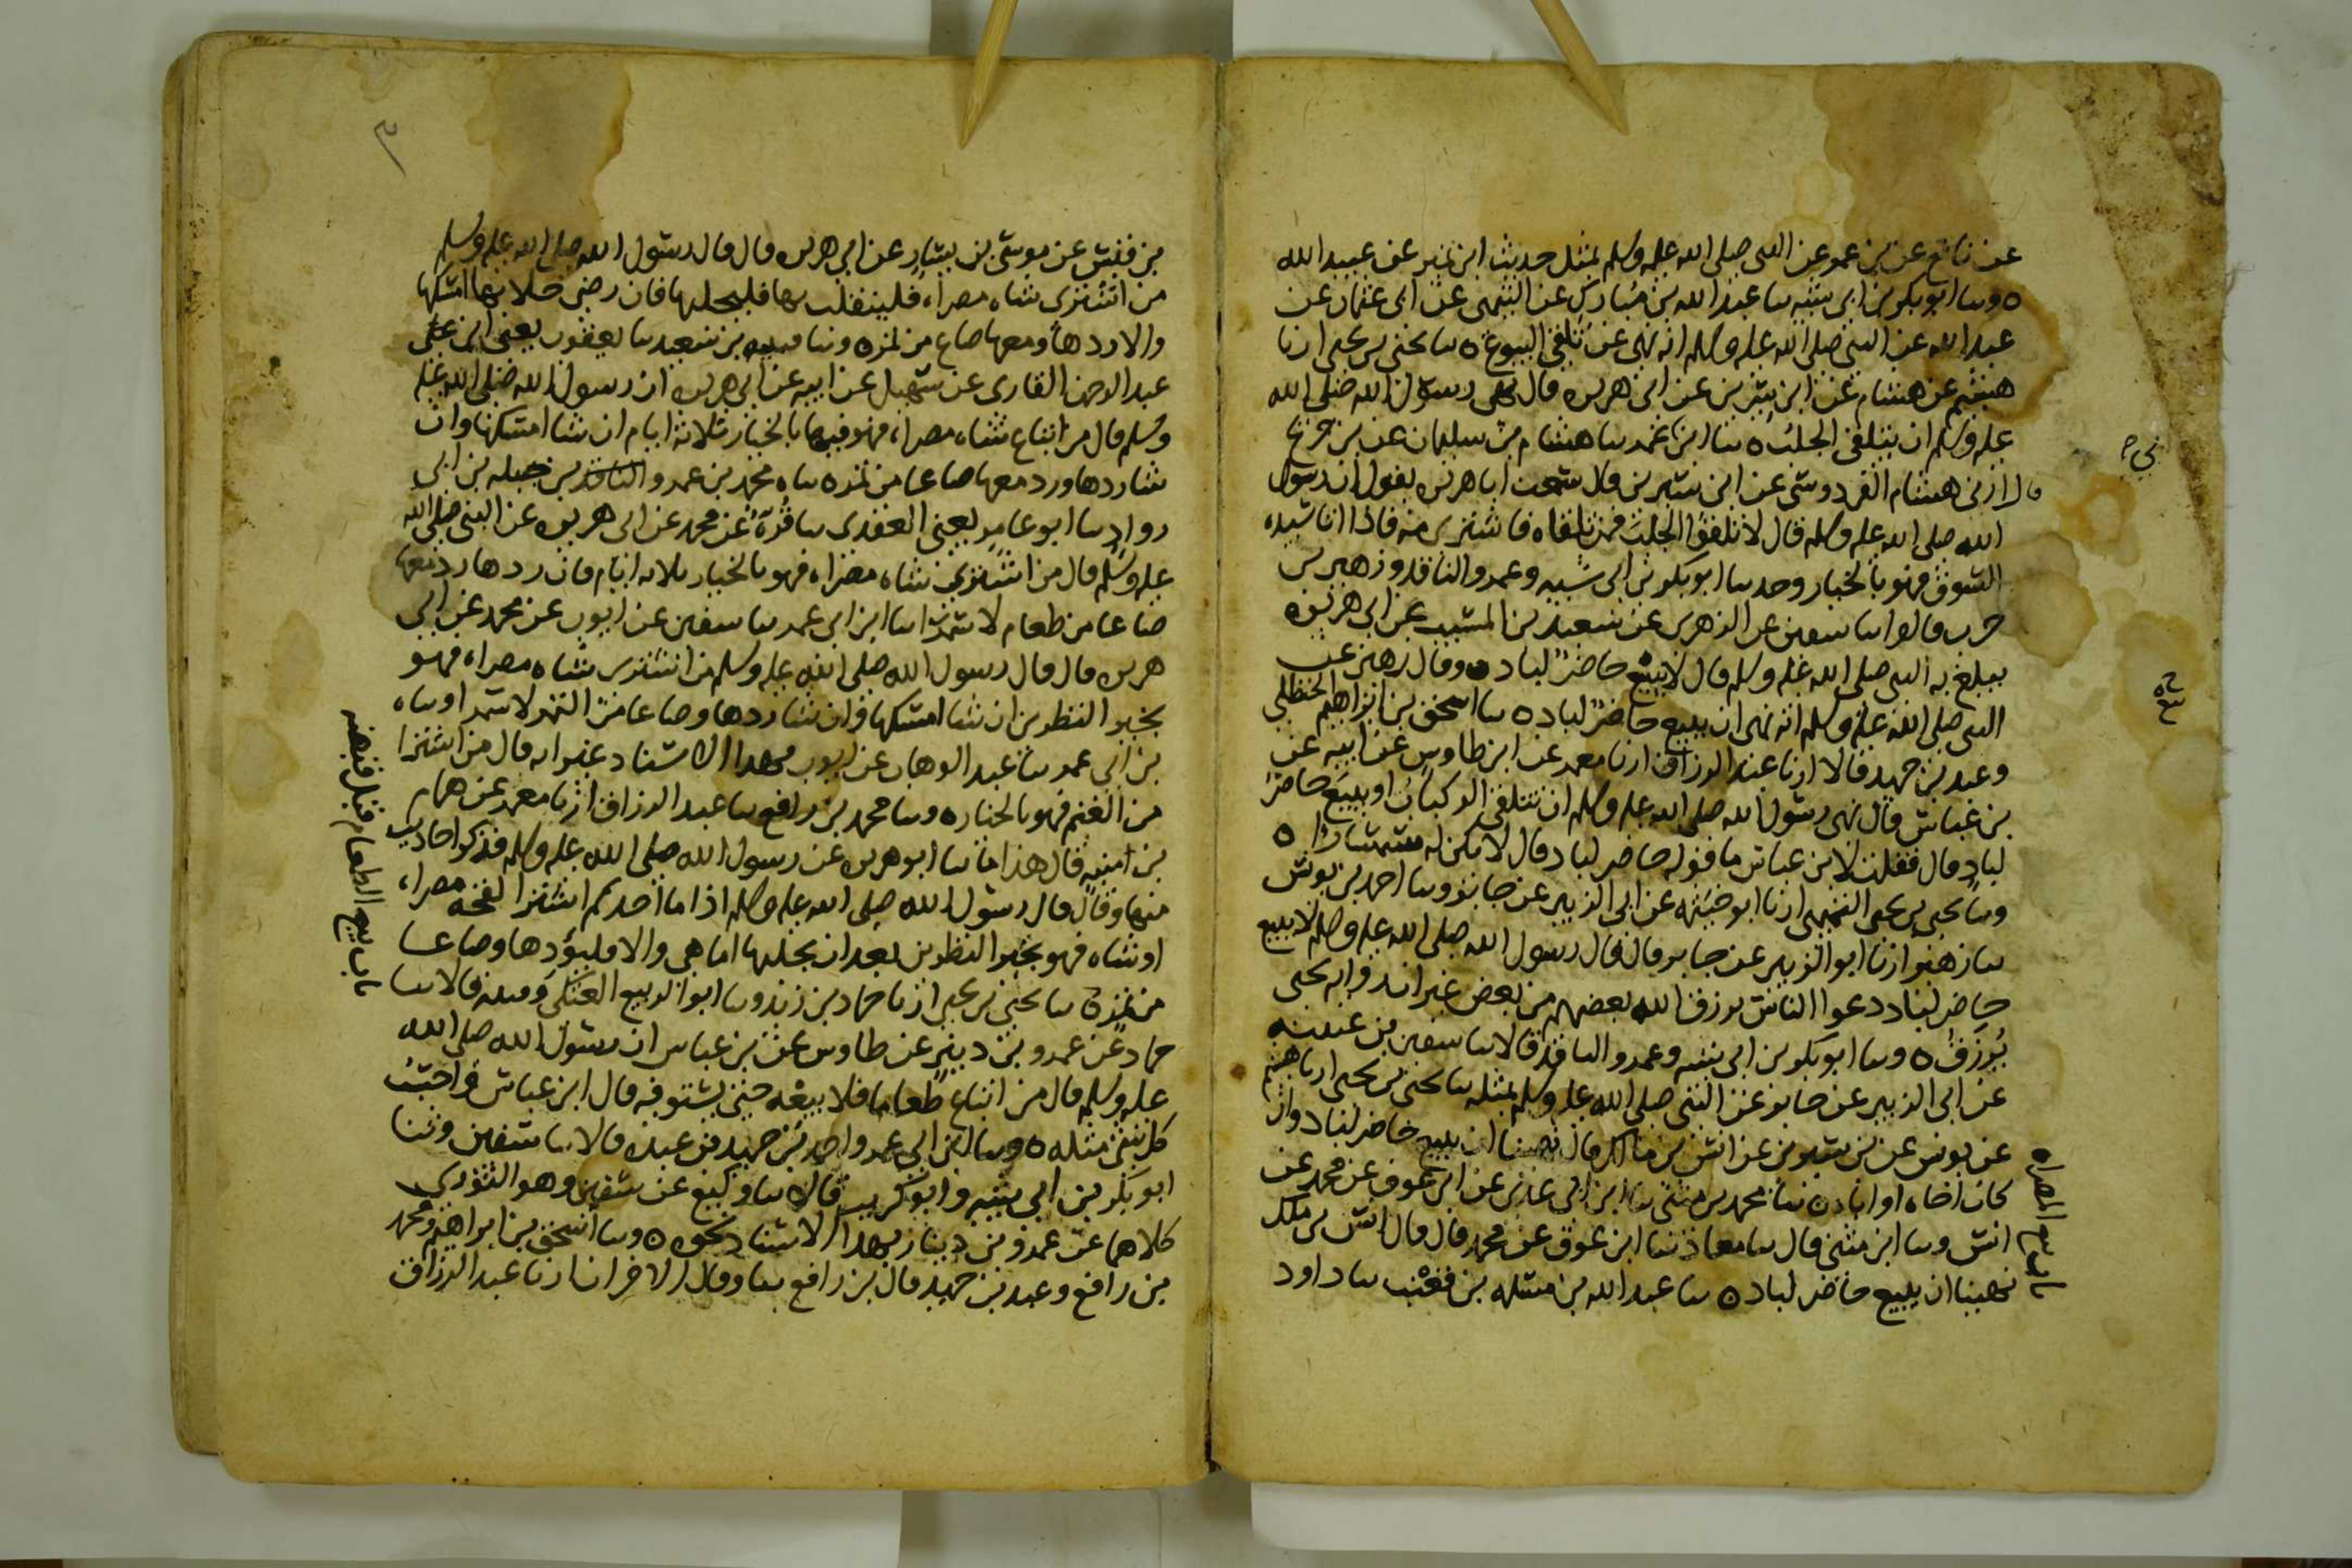 عن نافع عن بن عمر عن النبى صلى الله عليه وسلم بمثل حديث ابن نمير عن عبيد الله
ه وسا ابو بكر بن ابى شيبه سا عبد الله بن مبارك عن التيمى عن ابى عثمان عن
عبد الله عن النبى صلى الله عليه وسلم انه نهى عن تلقى البيوع ه سا يحيى بن يحيى ارنا
هشيم عن هشام عن ابن سيرين عن ابى هريره قال نهى رسول الله صلى الله
عليه وسلم ان يتلقى الجلب ه سا ابن ابى عمر سا هشام بن سليمان عن بن جريج
قال ارنى هشام القردوسى عن ابن سيرين قال سمعت ابا هريره يقول ان رسول
الله صلى الله عليه وسلم قال لا تلقوا الجلب فمن تلقاه فاشترى منه فاذا اتا سيده
السوق فهو بالخيار وحد سا ابو بكر بن ابى شيبه وعمرو الناقد وزهير بن
حرب قالوا سا سفين عن الزهرى عن سعيد بن المسيب عن ابى هريره
يبلغ به النبى صلى الله عليه وسلم قال لا يبيع حاضر لباد ه وقال زهير عن
النبى صلى الله عليه وسلم انه نهى ان يبيع حاضر لباد ه سا اسحق بن ابراهيم الحنظلى
وعبد بن حميد قالا ارنا عبد الرزاق ارنا معمر عن ابن طاوس عن ابيه عن
بن عباس قال نهى رسول الله صلى الله عليه وسلم ان تتلقى الركبان او يبيع حاضر
لباد قال فقلت لابن عباس ما قوله حاضر لباد قال لا يكن له سمسارا ه
وسا يحيى بن يحيى التميمى ارنا ابو خيثمه عن ابى الزبير عن جابر وسا احمد بن يونس
سا زهير ارنا ابو الزبير عن جابر قال قال رسول الله صلى الله عليه وسلم لا يبيع
حاضر لباد دعوا الناس يرزق الله بعضهم من بعض غير ان فى روايه يحيى
يُرزق ه وسا ابو بكر بن ابى شيبه وعمرو الناقد قالا سا سفين بن عيينه
عن ابى الزبير عن جابر عن النبى صلى الله عليه وسلم بمثله سا يحيى بن يحيى ارنا هشيم
عن يونس عن بن سيرين عن انس بن مالك قال نهينا ان يبيع حاضر لباد وان
كان اخاه او اباه ه سا محمد بن مثنى سا ابن ابى عدى عن ابن عون عن محمد عن
انس وسا ابن مثنى قال سا معاذ سا ابن عون عن محمد قال قال انس بن ملك
نهينا ان يبيع حاضر لباد ه سا عبد الله بن مسلمه بن قعنب سا داود
باب بيع المصراه
بن قيس عن موسى بن يسار عن ابى هريره قال قال رسول الله صلى الله عليه وسلم
من اشترى شاه مصراه فلينقلب بها فليحلبها فان رضى حلابها امسكها
والا ردها ومعها صاع من تمر ه وسا قتيبه بن سعيد سا يعقوب يعنى ابن
عبد الرحمن القارى عن سهيل عن ابيه عن ابى هريره ان رسول الله صلى الله عليه
وسلم قال من ابتاع شاه مصراه فهو فيها بالخيار ثلاثه ايام ان شا امسكها وان
شا ردها ورد معها صاعا من تمر ه سا محمد بن عمرو بن جبله بن ابى
رواد سا ابو عامر يعنى العقدى سا قرة عن محمد عن ابى هريره عن النبى صلى الله
عليه وسلم قال من اشترى شاه مصراه فهو بالخيار ثلاثه ايام فان ردها رد معها
صاعا من طعام لا سمرا سا ابن ابى عمر سا سفين عن ايوب عن محمد عن ابى
هريره قال قال رسول الله صلى الله عليه وسلم من اشترى شاه مصراه فهو
بخير النظرين ان شا امسكها وان شا ردها وصاعا من التمر لا سمرا وسا
بن ابى عمر سا عبد الوهاب عن ايوب بهذا الاسناد غير انه قال من اشترا
من الغنم فهو بالخيار ه وسا محمد بن رافع سا عبد الرزاق ارنا معمر عن همام
بن منبه قال هذا ما سا ابو هريره عن رسول الله صلى الله عليه وسلم فذكر احاديث
منها وقال قال رسول الله صلى الله عليه وسلم اذا ما احدكم اشترا لقحه مصراه
او شاه فهو بخير النظرين بعد ان يحلبها اما هى والا فليؤدها وصاعا
من تمر ه سا يحيى بن يحيى ارنا حماد بن زيد وسا ابو الربيع العتكى وقتيبه قالا سا
حماد عن عمرو بن دينر عن طاوس عن بن عباس ان رسول الله صلى الله
عليه وسلم قال من ابتاع طعاما فلا يبيعه حتى يستوفيه قال ابن عباس واحسب
كل شى مثله ه وسا ابن ابى عمر واحمد بن عبده قالا سا سفين وثنا
ابو بكر بن ابى شيبه وابو كريب قالا سا وكيع عن سفين وهو الثورى
كلاهما عن عمرو بن دينار بهذا الاسناد نحوه ه وسا اسحق بن ابراهيم ومحمد
بن رافع وعبد بن حميد قال بن رافع سا وقال الاخران ارنا عبد الرزاق
باب بيع الطعام قبل قبضه